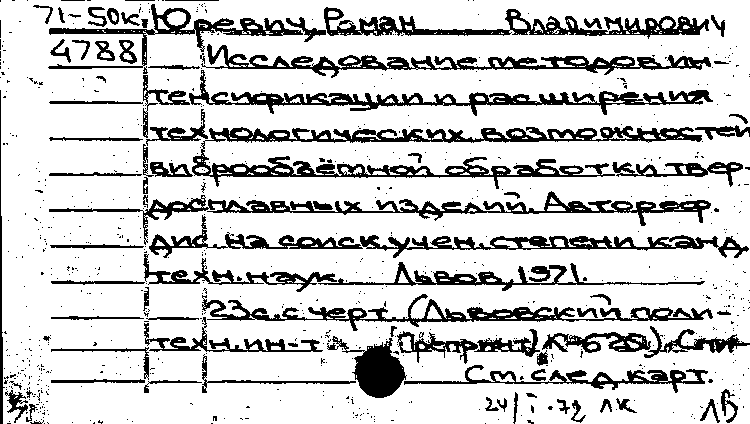 71-50к. Юревич, Роман Владимирович
4788 Исследование методов ин-
тенсификации и расширения
технологических возможностей
виброобъёмной обработки твер-
досплавных изделий. Автореф.
дис. на соиск. учен. степени канд.
техн. наук. Львов, 1971.
23с. с черт. (Львовский поли-
техн. ин-т [Препринт]
См. след. карт.
24/I-72 ЛК ЛВ